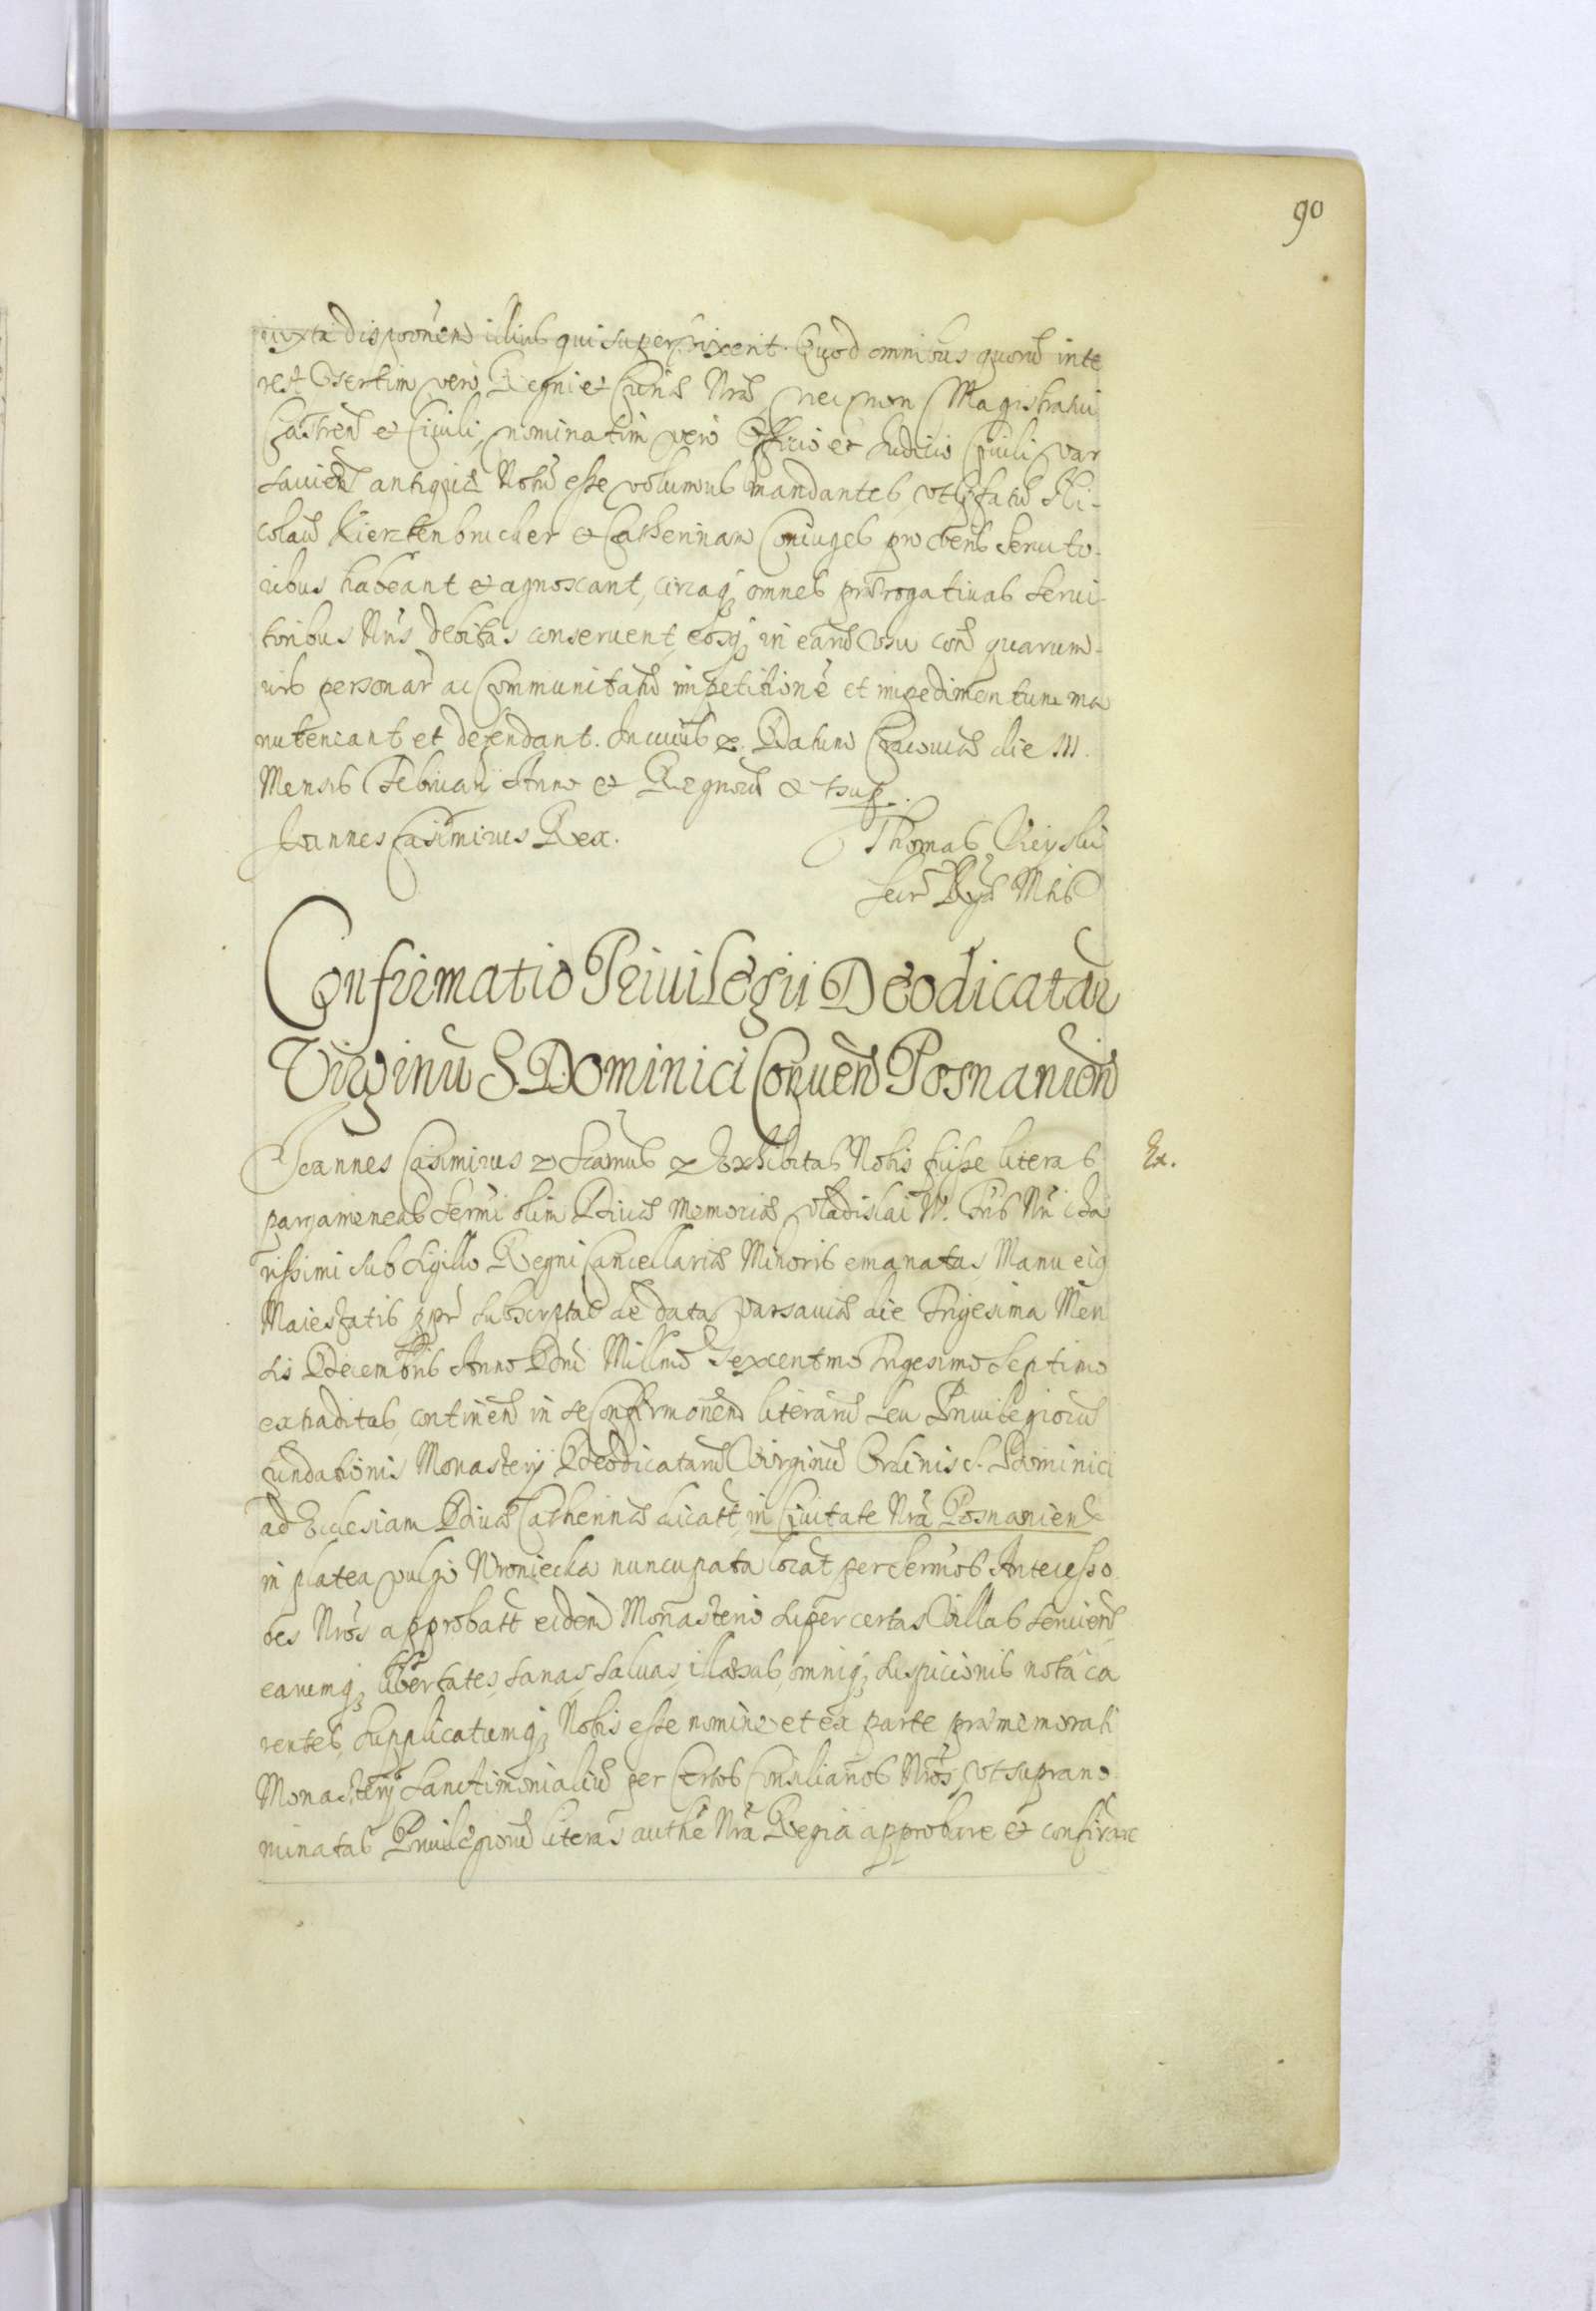 90
iuxta dispoōnem illius qui supervixerit. Quod omnibus quorū inte
rest Pṡertim vero Regni et Curiæ Nræ, nec non Magistratui
Castren̄ et Civili, nominatim vero Officio et Iudicio Civili Var
saviēn antiquæ Notū esse volumus mandantes, ut p̄fatū Ni-
colaū Kierztenbrucher et Catherinam Coniuges pro veris Servito-
ribus habeant et agnoscant, circaq; omnes prærogativas servi-
toribus Nr̄is debitas conservent, eosq; in earū usu con̄ quarum-
vis personar̄ ac Communitatū impetitionē et impedimentum ma
nuteneant et defendant. In cuius &. Datum Cracoviæ die III.
Mensis Februarii Anno et Regnorū & ut sup̄.
Joannes Casimirus Rex.
Thomas Uieyski
Secr̄ Rg̃æ Mtis
Confirmatio Privilegii Deodicatar̄
Virginū S. Dominici Conuen̄ Posnanien̄
Joannes Casimirus & Significamus & Exhibitas Nobis fuisse literas
Ex.
pargameneas Sermi olim Divæ Memoriæ Vladislai IV. Fr̄is Nr̄i cha
rissimi sub Sigillo Regni Cancellariæ Minoris emanatas, Manu eiq
Maiestatis ppr̄ subscriptas de data Varsaviæ die Trigesima Men
sis Decembris Anno Dn̄i Millmō Sexcentmo Trigesimo Septimo
extraditas, continen̄ in se Confirmōnem literarū seu Privilegiorū
fundationis Monastery Deodicatarū Virginū Ordinis S. Dominici
ad Ecclesiam Divæ Catherinæ dicatt, in Civitate Nrā Posnanien̄
in platea vulgo Wroniecka nuncupata locat̄ per Serm̄os Antecesso
res Nrōs approbatt eidem Monasterio super certas Villas servien̄
earumq; libertates, sanas, salvas, illæsas, omniq; suspicionis nota ca
rentes, Supplicatumq; Nobis esse nomine et ex parte præmemorati
Monastery Sanctimonialiū per Certos Consiliarios Nrōs, ut supran̄o
minatas Privilegiorū literas autħe Nrā Regia approbare et confirare